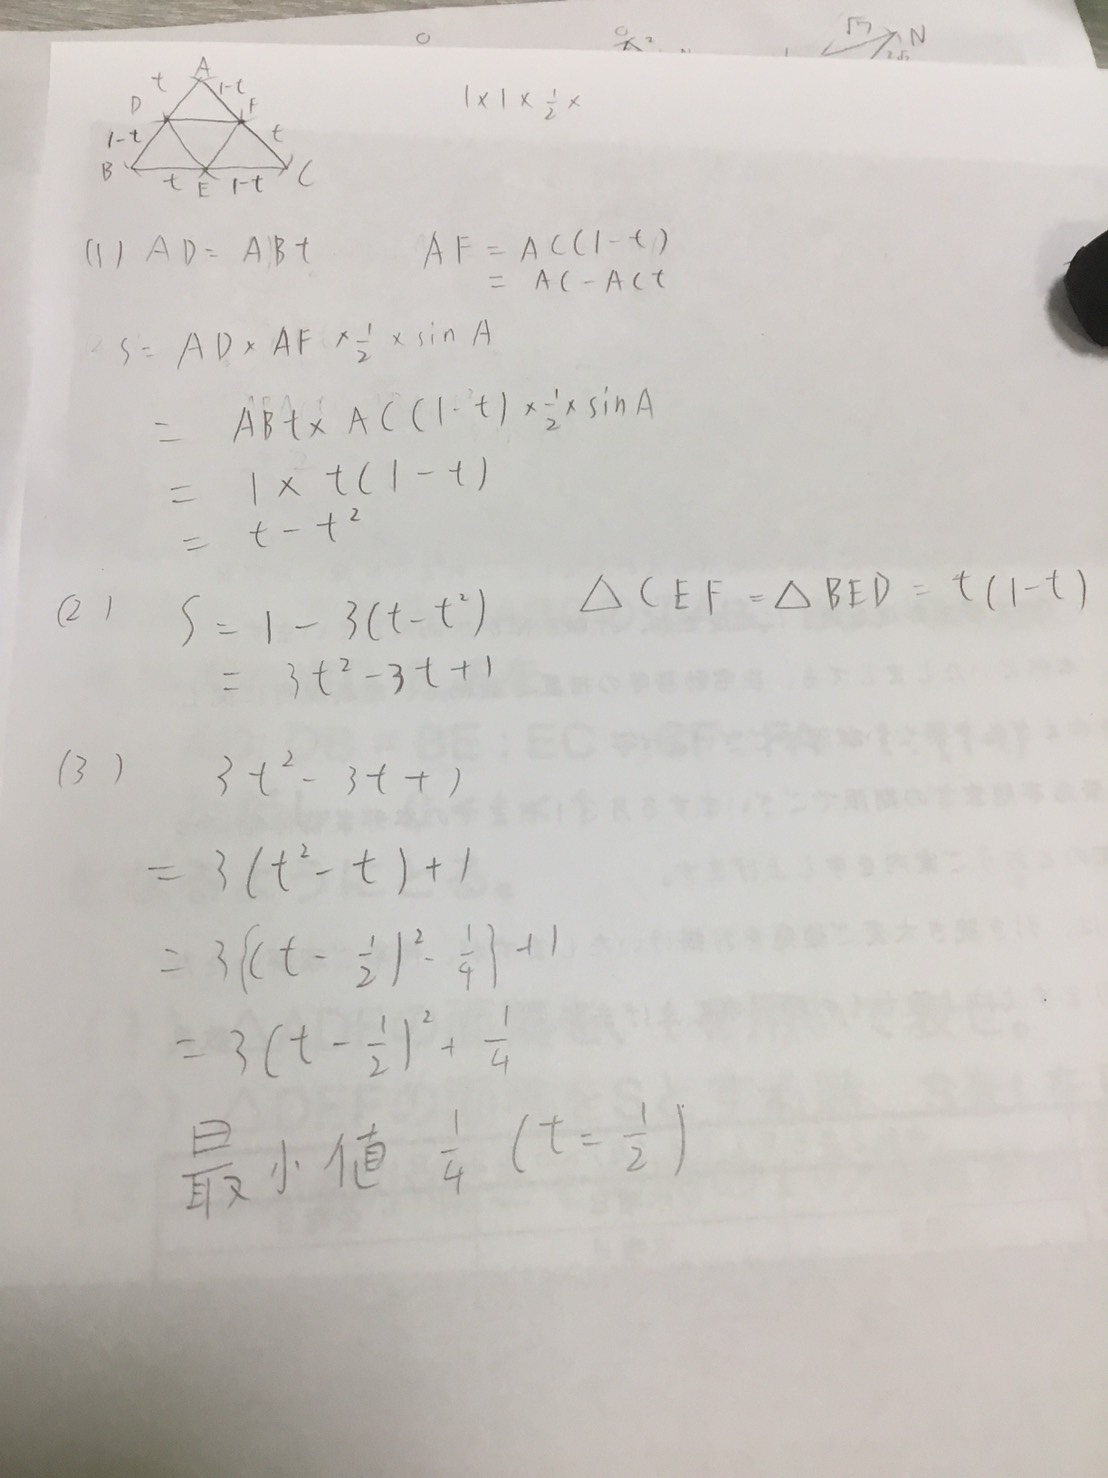 √7 N
2√7
A
t 1-t
D F
1-t t
B t E 1-t C
1×1×1/2×
(1) AD=ABt AF=AC(1-t)
=AC-ACt
S=AD×AF×1/2×sinA
=ABt×AC(1-t)×1/2×sinA
=1×t(1-t)
=t-t²
(2) S=1-3(t-t²) △CEF=△BED=t(1-t)
=3t²-3t+1
(3) 3t²-3t+1
=3(t²-t)+1
=3{(t-1/2)²-1/4}+1
=3(t-1/2)²+1/4
最小値 1/4 (t=1/2)